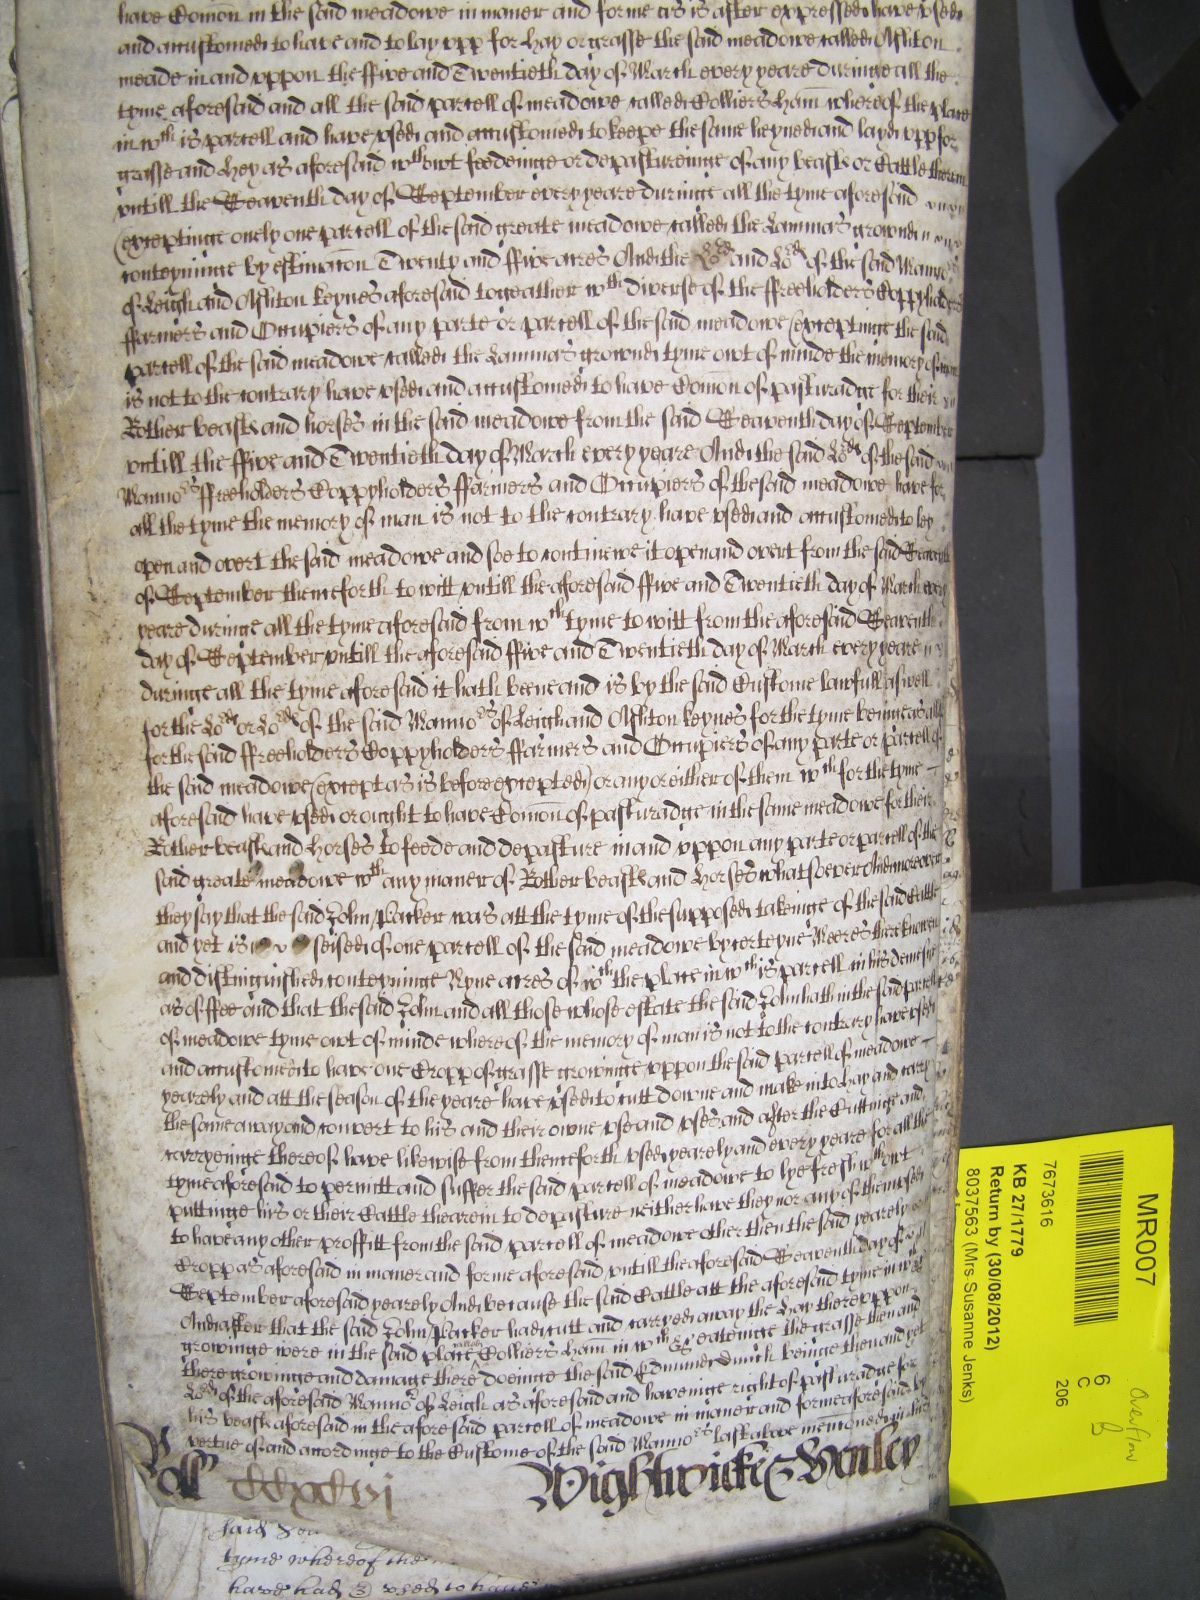 have Comon in the said meadowe in maner and forme as is after expressed have used
and accustomed to have and to lay upp for hay or grasse the said meadowe called Ashton
meade in and uppon the ffive and Twentieth day of March every yeare duringe all the
tyme aforesaid and all the said parcell of meadowe called Colliers Ham whereof the place
in wch is parcell and have used and accustomed to keepe the same heyned and layd upp for
grasse and hey as aforesaid wthowt feedeinge or depastureinge of any beasts or Cattle therein
untill the Seaventh day of September every yeare duringe all the tyme aforesaid
(exceptinge onely one parcell of the said greate meadowe called the Lammas grownd
conteyninge by estimacon Twenty and ffive acres And the Lord and Lords of the said Mannors
of Leigh and Ashton Keynes aforesaid togeather wth diverse of the ffreeholders Coppyholders
ffarmers and Occupiers of any parte or parcell of the said meadowe (exceptinge the said
parcell of the said meadowe called the Lammas grownd tyme owt of minde the memory of man
is not to the contrary have used and accustomed to have Comon of pasturadge for their
Rother beasts and horses in the said meadowe from the said Seaventh day of September
untill the ffive and Twentieth day of March every yeare And the said Lords of the said
Mannors ffreeholders Coppyholders ffarmers and Occupiers of the said meadowe have for
all the tyme the memory of man is not to the contrary have used and accustomed to ley
open and overt the said meadowe and soe to continewe it open and overt from the said Seaventh
of September thenceforth to witt untill the aforesaid ffive and Twentieth day of March every
yeare duringe all the tyme aforesaid from wch tyme to witt from the aforesaid Seaventh
day of September untill the aforesaid ffive and Twentieth day of March every yeare
duringe all the tyme aforesaid it hath beene and is by the said Custome lawfull aswell
for the Lord or Lords of the said Mannors of Leigh and Ashton Keynes for the tyme beinge as
for the said ffreeholders Coppyholders ffarmers and Occupiers of any parte or parcell of
the said meadowe (except as is before excepted) or any or either of them wch for the tyme
aforesaid have used or ought to have Comon of pasturadge in the same meadowe for their
Rother beasts and horses to feede and depasture in and uppon any parte or parcell of the
said greate meadowe wth any maner of Rother beasts and horses whatsoever And moreover
they say that the said John Packer was att the tyme of the supposed takeinge of the said Cattle
and yet is seised of one parcell of the said meadowe by certeyne Meeres there knowen
and distinguished conteyninge Nyne acres of wch the place in wch is parcell in his demesne
as of ffee and that the said John and all those whose estate the said John hath in the said parcell
of meadowe tyme owt of minde whereof the memory of man is not to the contrary have used
and accustomed to have one Cropp of grasse growinge uppon the said parcell of meadowe
yearely and att the season of the yeare have used to cutt downe and make into hay and carry
the same away and convert to his and their owne use and uses and after the Cuttinge and
carryeinge thereof have likewise from thenceforth used yearely and every yeare for all the
tyme aforesaid to permitt and suffer the said parcell of meadowe to lye fresh wthowt
puttinge his or their Cattle thearein to depasture neither have they nor any of them used
to have any other proffitt from the said parcell of meadowe other then the said yearely
Cropp as aforesaid in maner and forme aforesaid untill the aforesaid Seaventh day of
September aforesaid yearely And because the said Cattle att the aforesaid tyme in wch
And after that the said John Packer had cutt and carryed away the hay thereuppon
growinge were in the said place called Colliers ham in wch &c eateinge the grasse then and
there growinge and damage there doeinge the said Edmund beinge then and yet
Lord of the aforesaid Mannor of Leigh as aforesaid and haveinge right of pasturadge for
his beasts aforesaid in the aforesaid parcell of meadowe in maner and forme aforesaid by
vertue of and accordinge to the Custome of the said Mannors last above menconed
Wightwicke & Henley
said
tyme whereof the
have had & used to have
MR007
7673616
KB 27/1779
Return by (30/08/2012)
8037563 (Mrs Susanne Jenks)
6
C
206